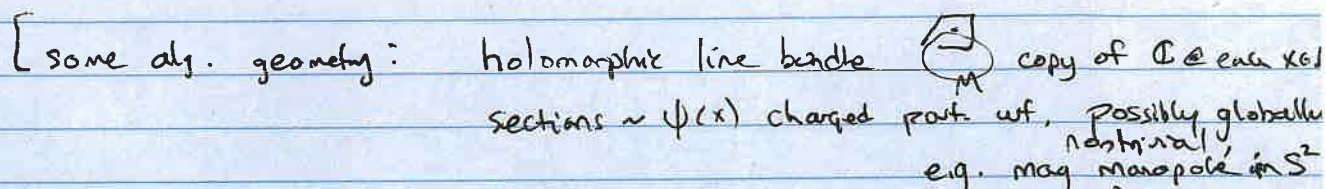 [ some alg. geometry : holomorphic line bundle M copy of ℂ @ each x∈
sections ~ ψ(x) charged part. wf, possibly globally
nontrivial,
e.g. mag monopole in S²